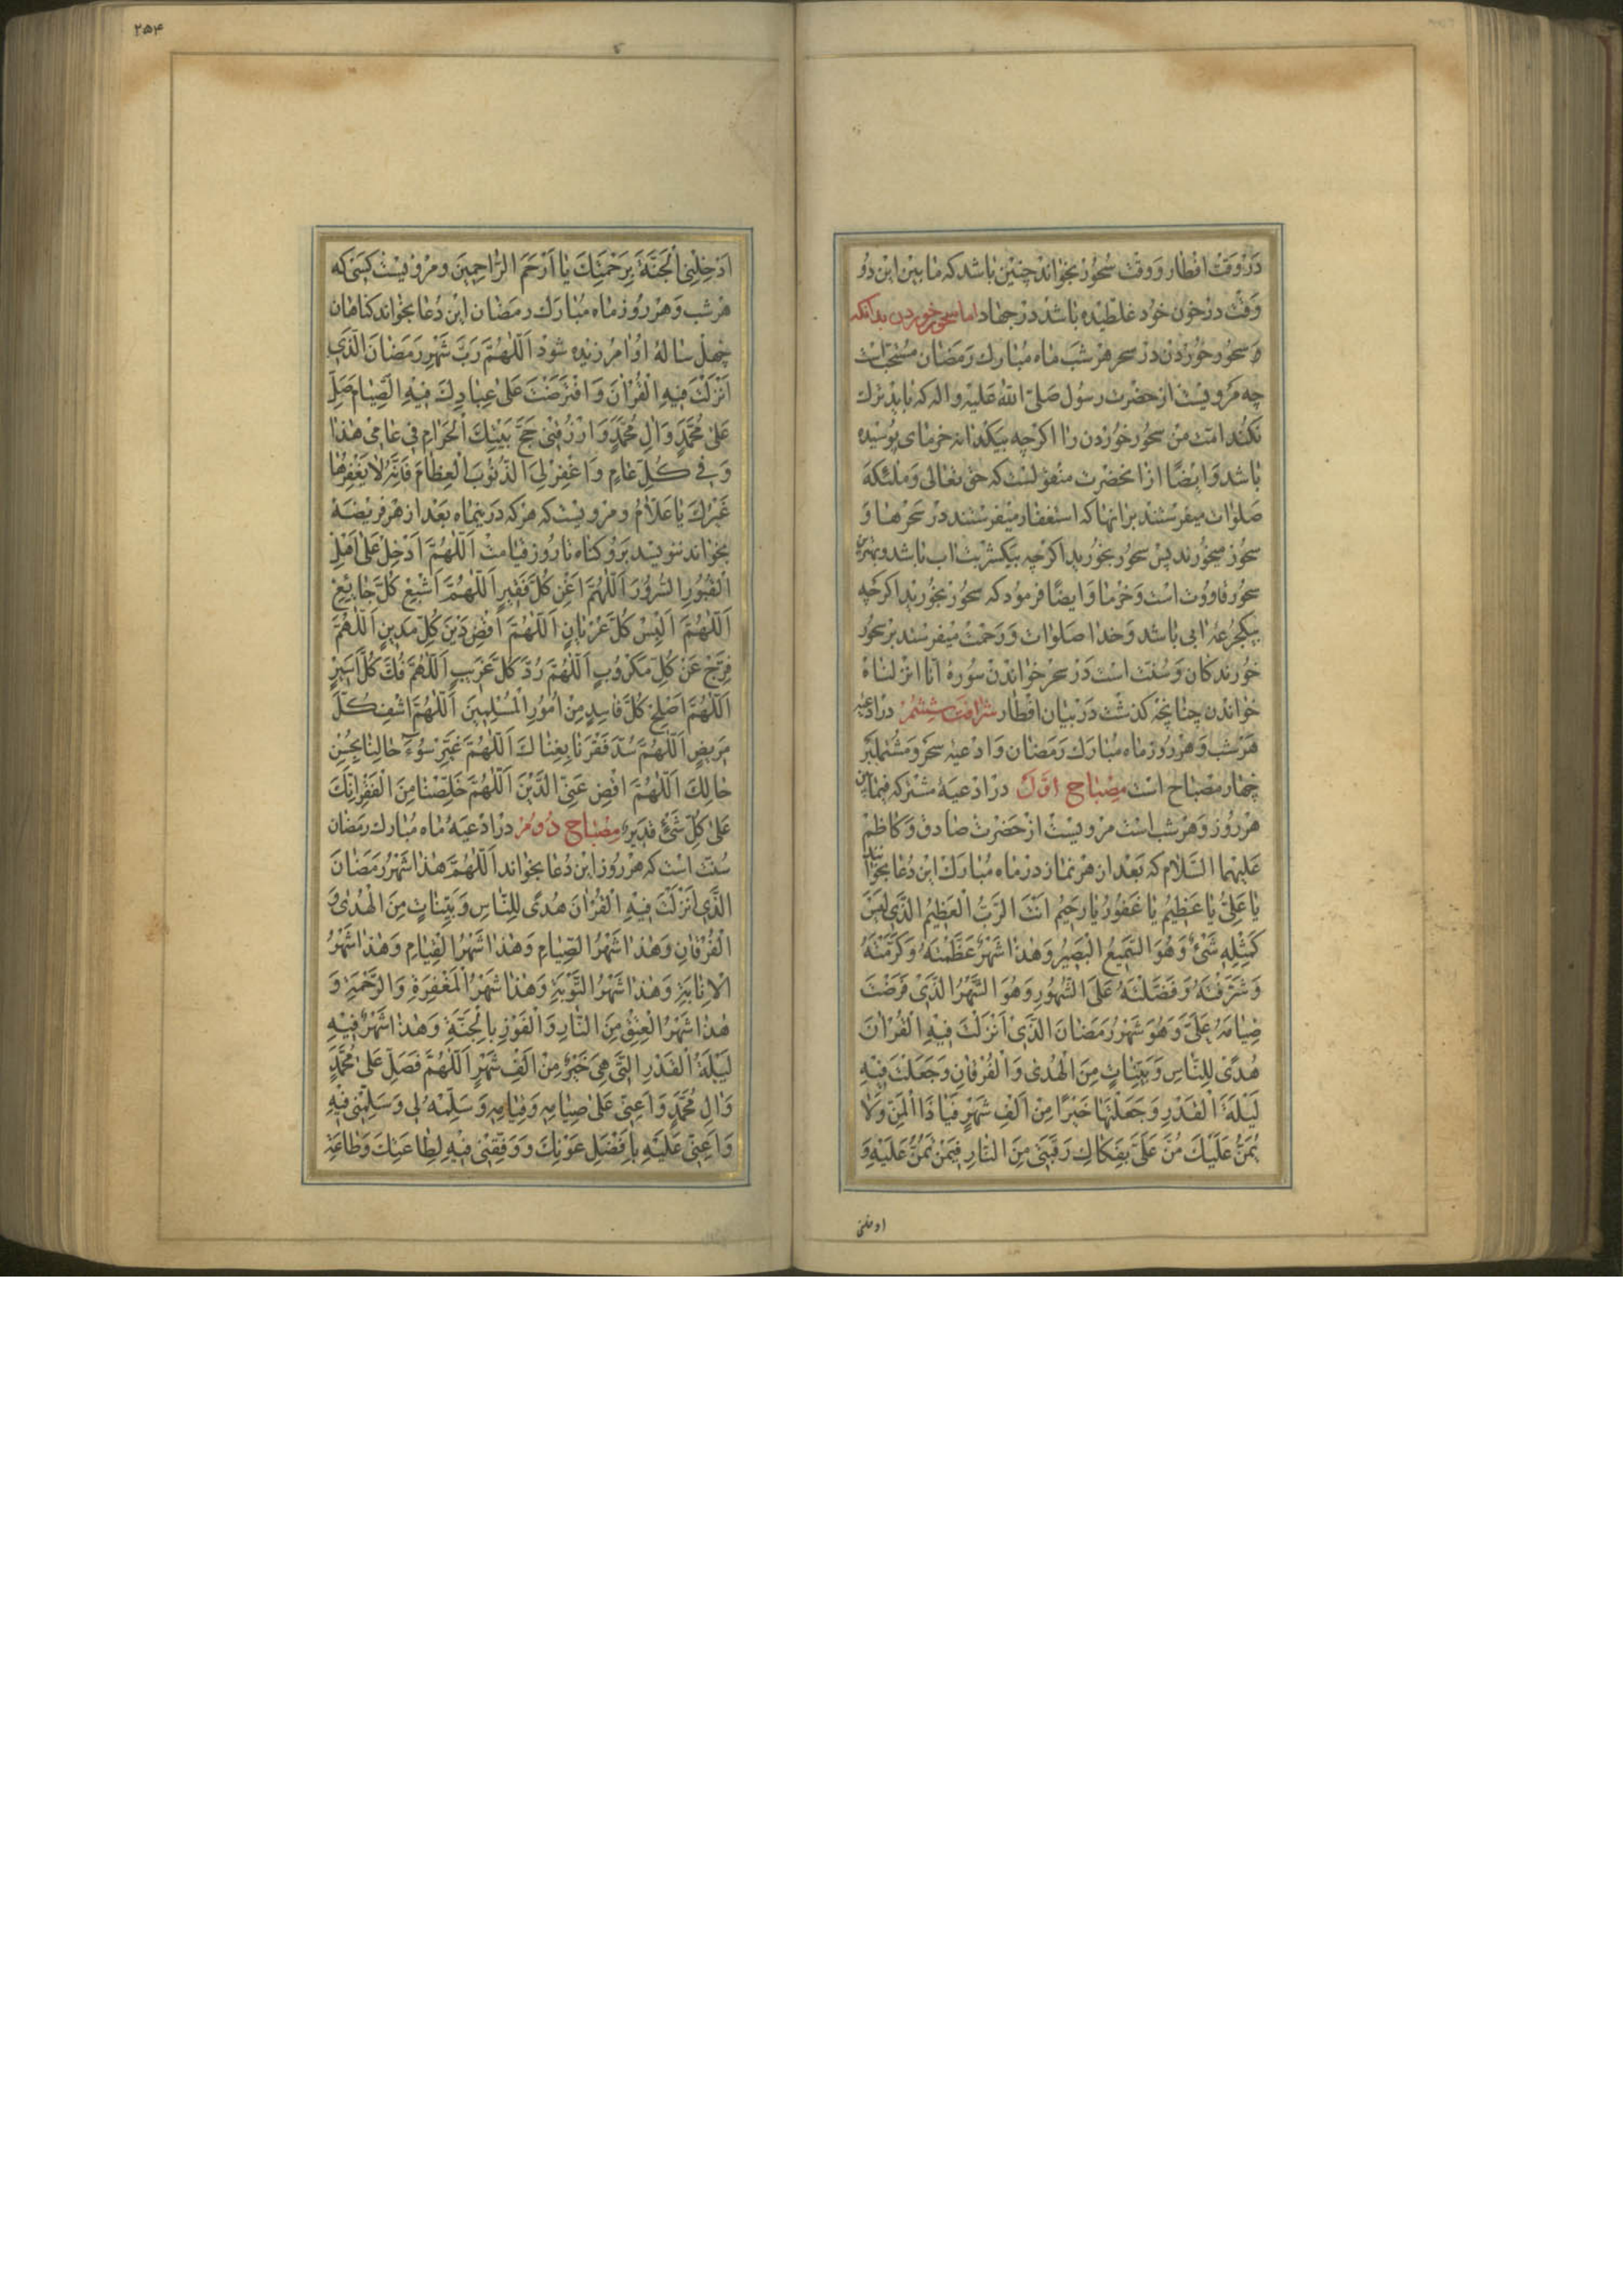 در وقت افطار و وقت سحور بخواند چنین باشد که ما بین این دو
وقت در خون خود غلطیده باشد در جهاد اما سحور خوردن بدانکه
سحور خوردن در سحر هر شب ماه مبارك رمضان مستحب است
چه مرویست از حضرت رسول صلی الله علیه و اله که باید ترك
نکنند امت من سحور خوردن را اکرچه بیکدانه خرمای پوسیده
باشد و ایضا از انحضرت منقولست که حق تعالی و ملئکه
صلوات میفرستند برانها که استغفار میفرستند در سحرها و
سحور میخورند پس سحور بخورید اکرچه بیکشربت اب باشد و بهترین
سحور قاووت است و خرما و ایضا فرمود که سحور بخورید اکرچه
بیکجرعه ابی باشد و خدا صلوات و رحمت میفرستند بر سحور
خورندکان و سنت است در سحر خواندن سوره انا انزلناه
خواندن چنانچه کذشت در بیان افطار شرافت ششم در ادعیه
هر شب و هر روز ماه مبارك رمضان و ادعیه سحر و مشتملبر
چهار مصباح است مصباح اول در ادعیه مشترکه فیمابین
هر روز و هر شب است مرویست از حضرت صادق و کاظم
علیهما السلام که بعد از هر نماز در ماه مبارك این دعا بخوانند
یا عَلِیُّ یا عَظِیمُ یا غَفُورُ یا رَحِیمُ اَنْتَ الرَّبُّ الْعَظِیمُ الَّذِی لَیْسَ
كَمِثْلِهِ شَیْءٌ وَهُوَ السَّمِیعُ الْبَصِیرُ وَهٰذا شَهْرٌ عَظَّمْتَهُ وَكَرَّمْتَهُ
وَشَرَّفْتَهُ وَفَضَّلْتَهُ عَلَى الشُّهُورِ وَهُوَ الشَّهْرُ الَّذِی فَرَضْتَ
صِیامَهُ عَلَیَّ وَهُوَ شَهْرُ رَمَضانَ الَّذِی اَنْزَلْتَ فِیهِ الْقُرْانَ
هُدًى لِلنّاسِ وَبَیِّناتٍ مِنَ الْهُدى وَالْفُرْقانِ وَجَعَلْتَ فِیهِ
لَیْلَةَ الْقَدْرِ وَجَعَلْتَها خَیْرًا مِنْ اَلْفِ شَهْرٍ فَیا ذَا الْمَنِّ وَلا
یُمَنُّ عَلَیْكَ مُنَّ عَلَیَّ بِفَكاكِ رَقَبَتِی مِنَ النّارِ فِیمَنْ تَمُنُّ عَلَیْهِ وَ
ادخلنی
۲۵۴
اَدْخِلْنِی الْجَنَّةَ بِرَحْمَتِكَ یا اَرْحَمَ الرّاحِمِینَ و مرویست کسی که
هر شب و هر روز ماه مبارك رمضان این دعا بخواند کناهان
چهل ساله او امرزیده شود اَللّٰهُمَّ رَبَّ شَهْرِ رَمَضانَ الَّذِی
اَنْزَلْتَ فِیهِ الْقُرْانَ وَافْتَرَضْتَ عَلى عِبادِكَ فِیهِ الصِّیامَ صَلِّ
عَلى مُحَمَّدٍ وَالِ مُحَمَّدٍ وَارْزُقْنِی حَجَّ بَیْتِكَ الْحَرامِ فِی عامِی هٰذا
وَفِی كُلِّ عامٍ وَاغْفِرْ لِیَ الذُّنُوبَ الْعِظامَ فَاِنَّهُ لا یَغْفِرُها
غَیْرُكَ یا عَلّامُ و مرویست که هر که در ینماه بعد از هر فریضه
بخواند ننویسد بر و کناه تا روز قیامت اَللّٰهُمَّ اَدْخِلْ عَلى اَهْلِ
الْقُبُورِ السُّرُورَ اَللّٰهُمَّ اَغْنِ كُلَّ فَقِیرٍ اَللّٰهُمَّ اَشْبِعْ كُلَّ جائِعٍ
اَللّٰهُمَّ اَلْبِسْ كُلَّ عُرْیانٍ اَللّٰهُمَّ اقْضِ دَیْنَ كُلِّ مَدِینٍ اَللّٰهُمَّ
فَرِّجْ عَنْ كُلِّ مَكْرُوبٍ اَللّٰهُمَّ رُدَّ كُلَّ غَرِیبٍ اَللّٰهُمَّ فُكَّ كُلَّ اَسِیرٍ
اَللّٰهُمَّ اَصْلِحْ كُلَّ فاسِدٍ مِنْ اُمُورِ الْمُسْلِمِینَ اَللّٰهُمَّ اشْفِ كُلَّ
مَرِیضٍ اَللّٰهُمَّ سُدَّ فَقْرَنا بِغِناكَ اَللّٰهُمَّ غَیِّرْ سُوءَ حالِنا بِحُسْنِ
حالِكَ اَللّٰهُمَّ اقْضِ عَنِّی الدَّیْنَ اَللّٰهُمَّ خَلِّصْنا مِنَ الْفَقْرِ اِنَّكَ
عَلى كُلِّ شَیْءٍ قَدِیرٌ مصباح دوم در ادعیه ماه مبارك رمضان
سنت است که هر روز این دعا بخواند اَللّٰهُمَّ هٰذا شَهْرُ رَمَضانَ
الَّذِی اَنْزَلْتَ فِیهِ الْقُرْانَ هُدًى لِلنّاسِ وَبَیِّناتٍ مِنَ الْهُدى وَ
الْفُرْقانِ وَهٰذا شَهْرُ الصِّیامِ وَهٰذا شَهْرُ الْقِیامِ وَهٰذا شَهْرُ
الْاِنابَةِ وَهٰذا شَهْرُ التَّوْبَةِ وَهٰذا شَهْرُ الْمَغْفِرَةِ وَالرَّحْمَةِ وَ
هٰذا شَهْرُ الْعِتْقِ مِنَ النّارِ وَالْفَوْزِ بِالْجَنَّةِ وَهٰذا شَهْرٌ فِیهِ
لَیْلَةُ الْقَدْرِ الَّتِی هِیَ خَیْرٌ مِنْ اَلْفِ شَهْرٍ اَللّٰهُمَّ فَصَلِّ عَلى مُحَمَّدٍ
وَالِ مُحَمَّدٍ وَاَعِنِّی عَلى صِیامِهِ وَقِیامِهِ وَسَلِّمْهُ لِی وَسَلِّمْنِی فِیهِ
وَاَعِنِّی عَلَیْهِ بِاَفْضَلِ عَوْنِكَ وَوَفِّقْنِی فِیهِ لِطاعَتِكَ وَطاعَةِ